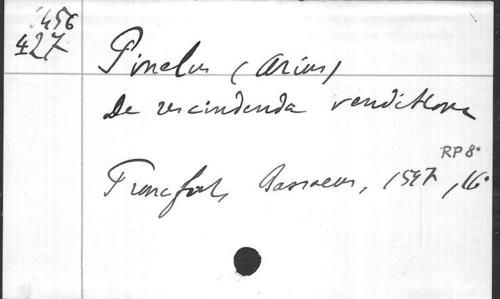 1456
427
Pinelus (Arius)
De rescindenda venditione
RP 8°
Francfort, Bassaeus, 1597, 16°